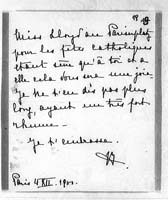 Miss Lloyd au Paraclet
pour les fêtes catholiques
étant sûre qu'à toi et à
elle cela vous sera une joie.
Je ne t'en dis pas plus
long, ayant un très fort
rhume.
Je t'embrasse.
Paris 4 XII. 1901.